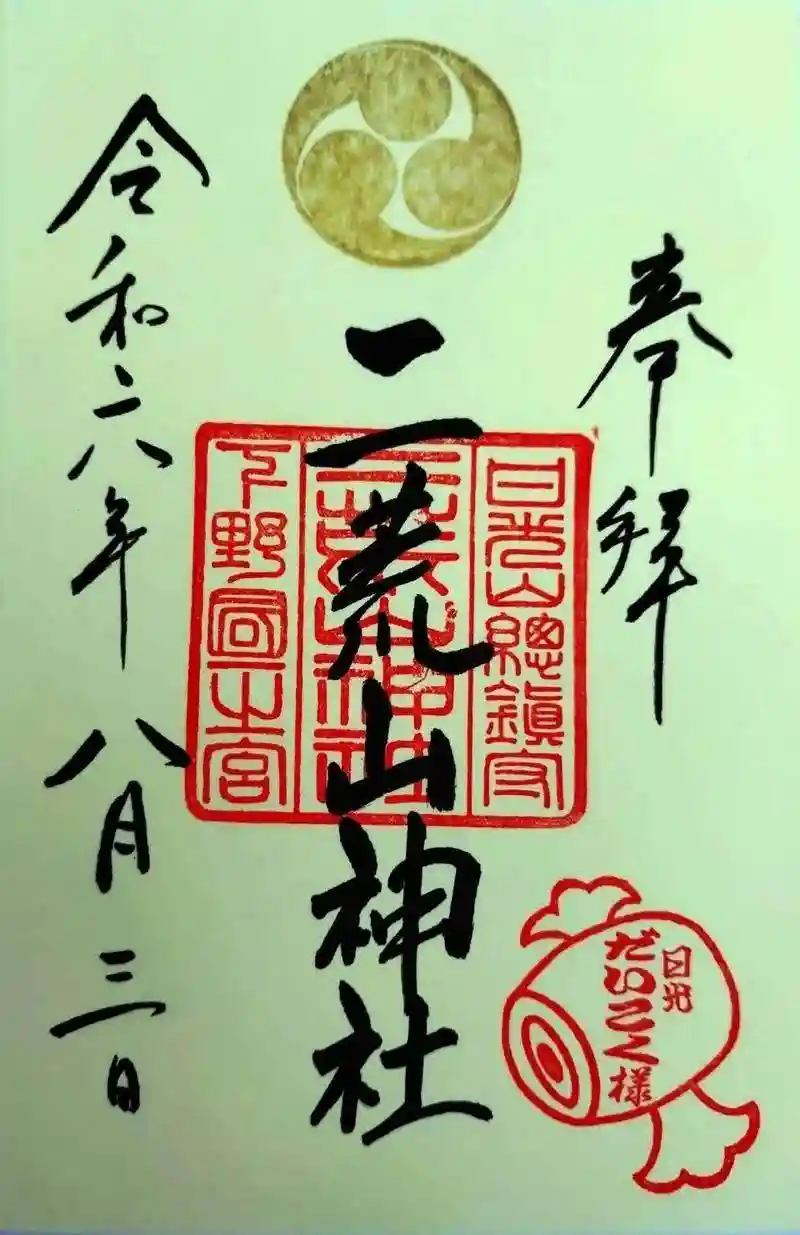 奉拝
日光山總鎮守
二荒山神社
二荒山神社
下野国一之宮
令和六年八月三日
日光
だいこく様